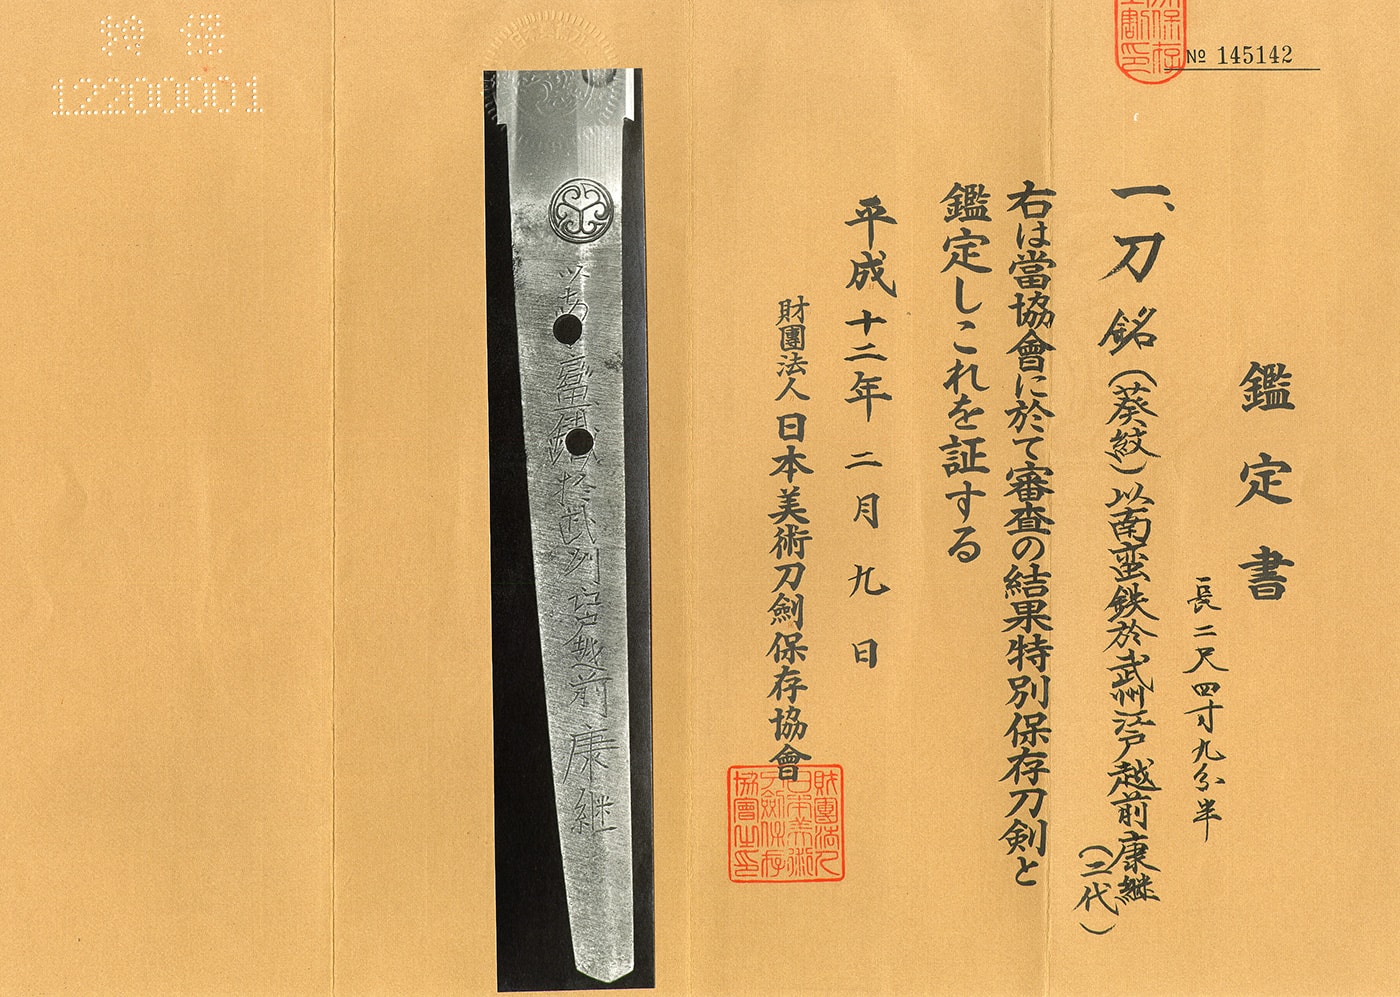 № 145142
鑑定書
長二尺四寸九分半
一、刀 銘(葵紋)以南蛮鉄於武州江戸越前康継
(三代)
右は當協會に於て審査の結果特別保存刀剣と
鑑定しこれを証する
平成十二年二月九日
財團法人日本美術刀劍保存協會
財團法人日本美術刀劍保存協會之印
以南蠻鐵於武州江戸越前康継
12200001